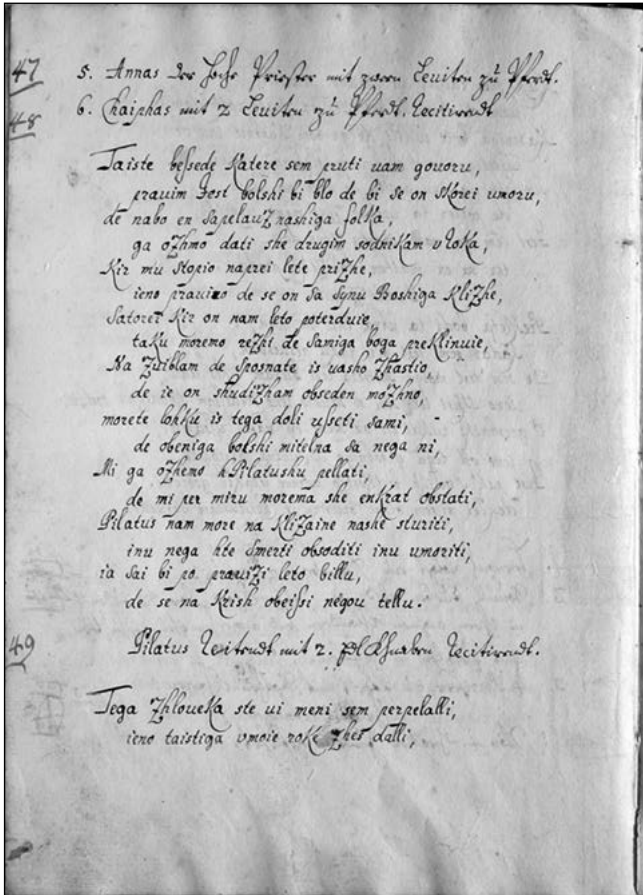 47 5. Annas der Hohe Priester mit zween Leuiten zu Pferdt.
48 6. Chaiphas mit 2 Leuiten zu Pferdt. Recitirendt
Taiste beſsede katere sem pruti uam gouoru,
prauim Jest bolshi bi blo de bi se on skorei umoru,
de nabo en sapelauz nashiga folka,
ga ozhmo dati she drugim sodnikam v roka,
Kir mu stopio naprei lete prizhe,
ieno prauio de se on sa synu Boshiga klizhe,
Satorei kir on nam leto poterduie,
taku moremo rezhi de samiga boga preklinuie,
Na zwiblam de sposnate is uasho zhastio,
de ie on shudizham obseden mozhno,
morete lohku is tega doli uſseti sami,
de obeniga bolshi mitelna sa nega ni,
Mi ga ozhemo h Pilatushu pellati,
de mi per miru morema she enkrat obstati,
Pilatus nam more na klizaine nashe sturiti,
inu nega hte smerti obsoditi inu umoriti,
ia sai bi po prauizi leto billu,
de se na krish obeiſsi negou tellu.
49 Pilatus Reitendt mit 2. Knaben Recitirendt.
Tega zhloueka ste ui meni sem perpelalli,
ieno taistiga vmoie roke zhes dalli,